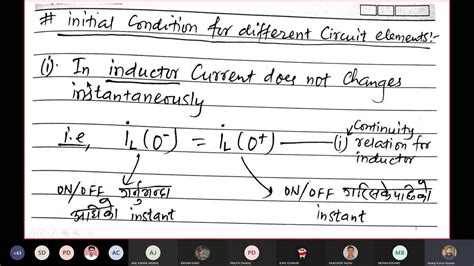 # initial Condition for different Circuit elements:-
(i). In inductor Current does not Changes
instantaneously
i.e, iL(0⁻) = iL(0⁺) — (i) Continuity
relation for
inductor
ON/OFF गर्नुभन्दा ON/OFF
अघिको instant instant
+63 SD PD AC AJ BD PD MB